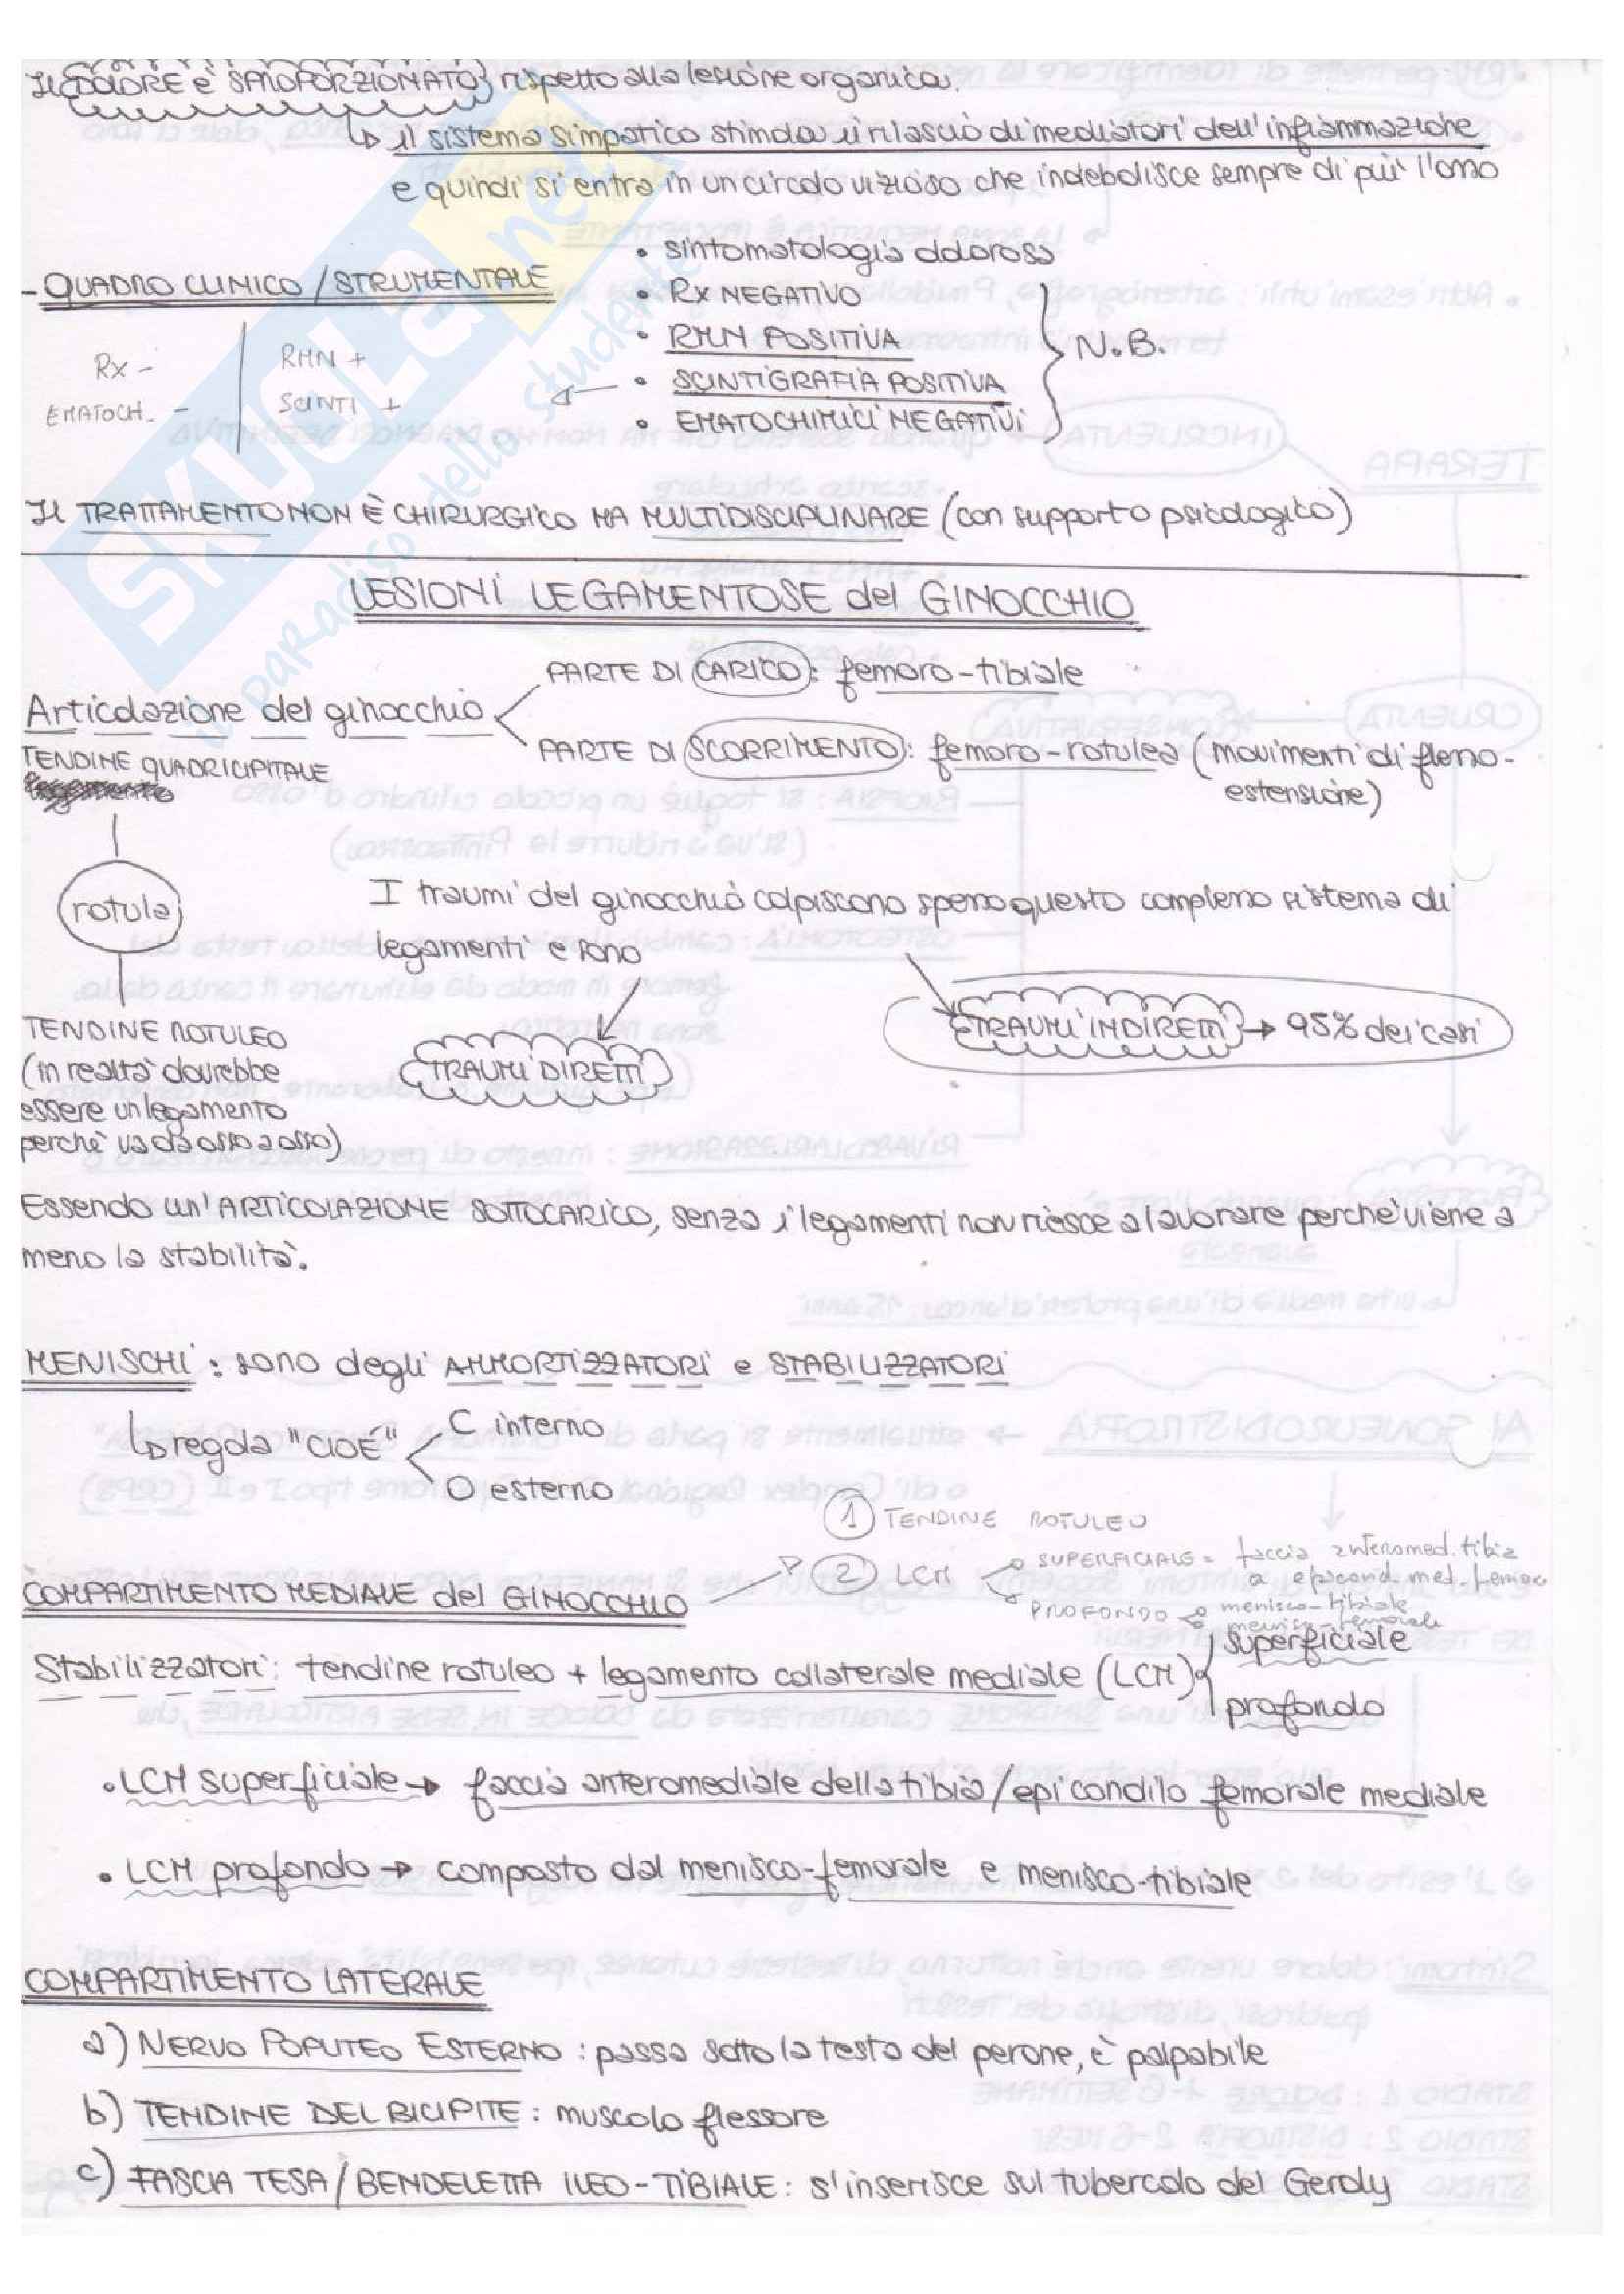 Il DOLORE è SPROPORZIONATO rispetto alla lesione organica.
↳ il sistema simpatico stimola il rilascio di mediatori dell'infiammazione
e quindi si entra in un circolo vizioso che indebolisce sempre di più l'osso
- QUADRO CLINICO / STRUMENTALE
• sintomatologia dolorosa
• RX NEGATIVO
• RMN POSITIVA
• SCINTIGRAFIA POSITIVA
• EMATOCHIMICI NEGATIVI
N.B.
Rx -
EMATOCH. -
RMN +
SCINTI +
Il TRATTAMENTO NON È CHIRURGICO MA MULTIDISCIPLINARE (con supporto psicologico)
LESIONI LEGAMENTOSE del GINOCCHIO
Articolazione del ginocchio
PARTE DI CARICO: femoro-tibiale
PARTE DI SCORRIMENTO: femoro-rotulea (movimenti di flesso-
estensione)
TENDINE QUADRICIPITALE
rotula
TENDINE ROTULEO
(in realtà dovrebbe
essere un legamento
perchè va da osso a osso)
I traumi del ginocchio colpiscono spesso questo complesso sistema di
legamenti e sono
TRAUMI DIRETTI
TRAUMI INDIRETTI → 95% dei casi
Essendo un'ARTICOLAZIONE SOTTOCARICO, senza i legamenti non riesce a lavorare perchè viene a
meno la stabilità.
MENISCHI: sono degli AMMORTIZZATORI e STABILIZZATORI
↳ regola "CIOÈ"
C interno
O esterno
COMPARTIMENTO MEDIALE del GINOCCHIO
1 TENDINE ROTULEO
2 LCM
SUPERFICIALE = faccia anteromed. tibia
a epicond. med. femore
PROFONDO
menisco-tibiale
menisco-femorale
Stabilizzatori: tendine rotuleo + legamento collaterale mediale (LCM)
superficiale
profondo
• LCM superficiale → faccia anteromediale della tibia/epicondilo femorale mediale
• LCM profondo → composto dal menisco-femorale e menisco-tibiale
COMPARTIMENTO LATERALE
a) NERVO POPLITEO ESTERNO: passa sotto la testa del perone, è palpabile
b) TENDINE DEL BICIPITE: muscolo flessore
c) FASCIA TESA / BENDELETTA ILEO-TIBIALE: s'inserisce sul tubercolo del Gerdly
SKUOLA.net
il paradiso dello studente